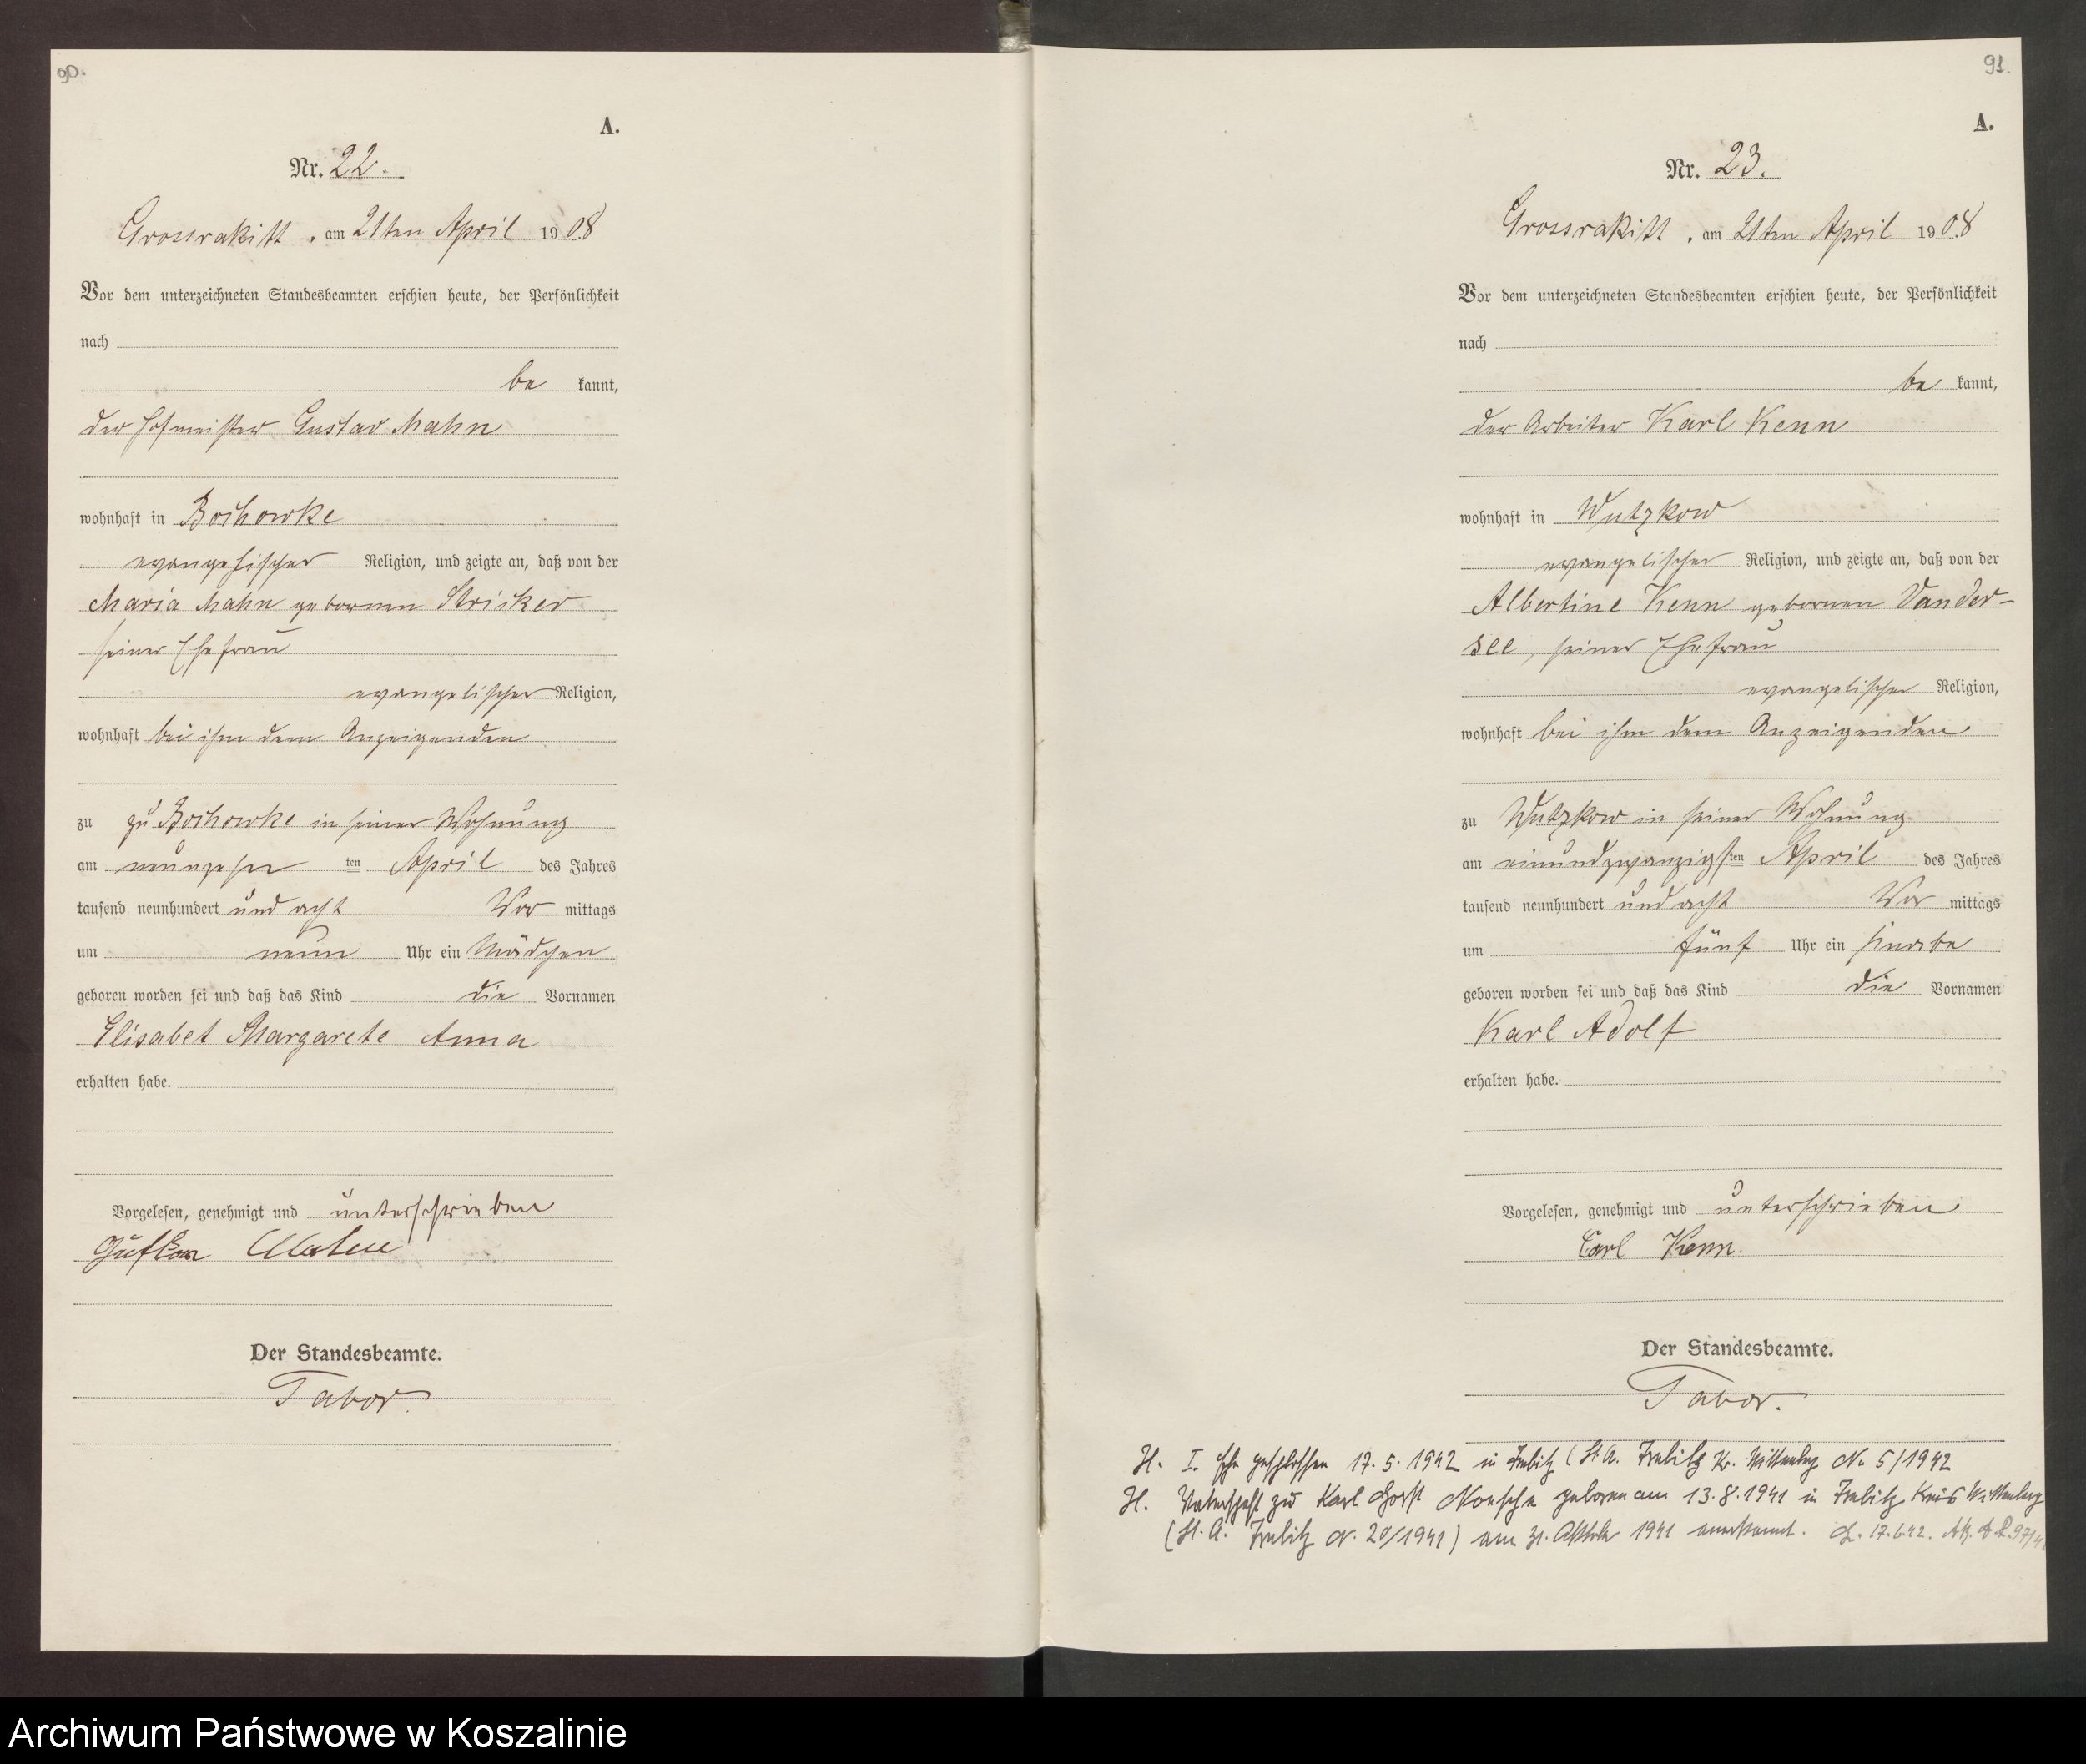 90.
A.
Nr. 22.
Grossrakitt, am 21ten April 1908
Vor dem unterzeichneten Standesbeamten erschien heute, der Persönlichkeit
nach
be kannt,
der Hofmeister Gustav Mahn
wohnhaft in Bochowke
evangelischer Religion, und zeigte an, daß von der
Maria Mahn gebornen Stricker
seiner Ehefrau
evangelischer Religion,
wohnhaft bei ihm dem Anzeigenden
zu zu Bochowke in seiner Wohnung
am neunzehn ten April des Jahres
tausend neunhundert und acht Vor mittags
um neun Uhr ein Mädchen
geboren worden sei und daß das Kind die Vornamen
Elisabet Margarete Anna
erhalten habe.
Vorgelesen, genehmigt und unterschrieben
Gustav Mahn
Der Standesbeamte.
Tabor.
91.
A.
Nr. 23.
Grossrakitt, am 21ten April 1908
Vor dem unterzeichneten Standesbeamten erschien heute, der Persönlichkeit
nach
be kannt,
der Arbeiter Karl Kenn
wohnhaft in Wutzkow
evangelischer Religion, und zeigte an, daß von der
Albertine Kenn gebornen Vander-
see, seiner Ehefrau
evangelischer Religion,
wohnhaft bei ihm dem Anzeigenden
zu Wutzkow in seiner Wohnung
am einundzwanzigsten April des Jahres
tausend neunhundert und acht Vor mittags
um fünf Uhr ein Knabe
geboren worden sei und daß das Kind die Vornamen
Karl Adolf
erhalten habe.
Vorgelesen, genehmigt und unterschrieben
Carl Kenn.
Der Standesbeamte.
Tabor.
H. I. Ehe geschlossen 17.5.1942 in Trebitz (St.A. Trebitz Kr. Wittenberg Nr. 5/1942
H. Vaterschaft zu Karl Horst geboren am 13.8.1941 in Trebitz Kreis Wittenberg
(St.A. Trebitz Nr. 20/1941) am 31. Oktober 1941 anerkannt. 17.6.42.
Archiwum Państwowe w Koszalinie